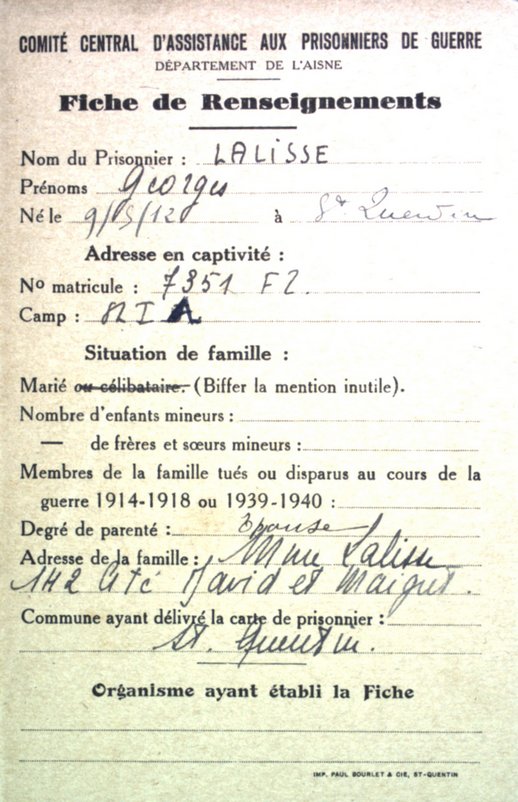 COMITÉ CENTRAL D'ASSISTANCE AUX PRISONNIERS DE GUERRE
DÉPARTEMENT DE L'AISNE
Fiche de Renseignements
Nom du Prisonnier : LALISSE
Prénoms Georges
Né le 9/5/12 à St Quentin
Adresse en captivité :
No matricule : 7351 F2.
Camp : I A
Situation de famille :
Marié ou célibataire. (Biffer la mention inutile).
Nombre d'enfants mineurs :
— de frères et sœurs mineurs :
Membres de la famille tués ou disparus au cours de la
guerre 1914-1918 ou 1939-1940 :
Degré de parenté : Epouse
Adresse de la famille : Mme Lalisse
142 Cité David et Maigret.
Commune ayant délivré la carte de prisonnier :
St. Quentin.
Organisme ayant établi la Fiche
IMP. PAUL BOURLET & CIE, ST-QUENTIN